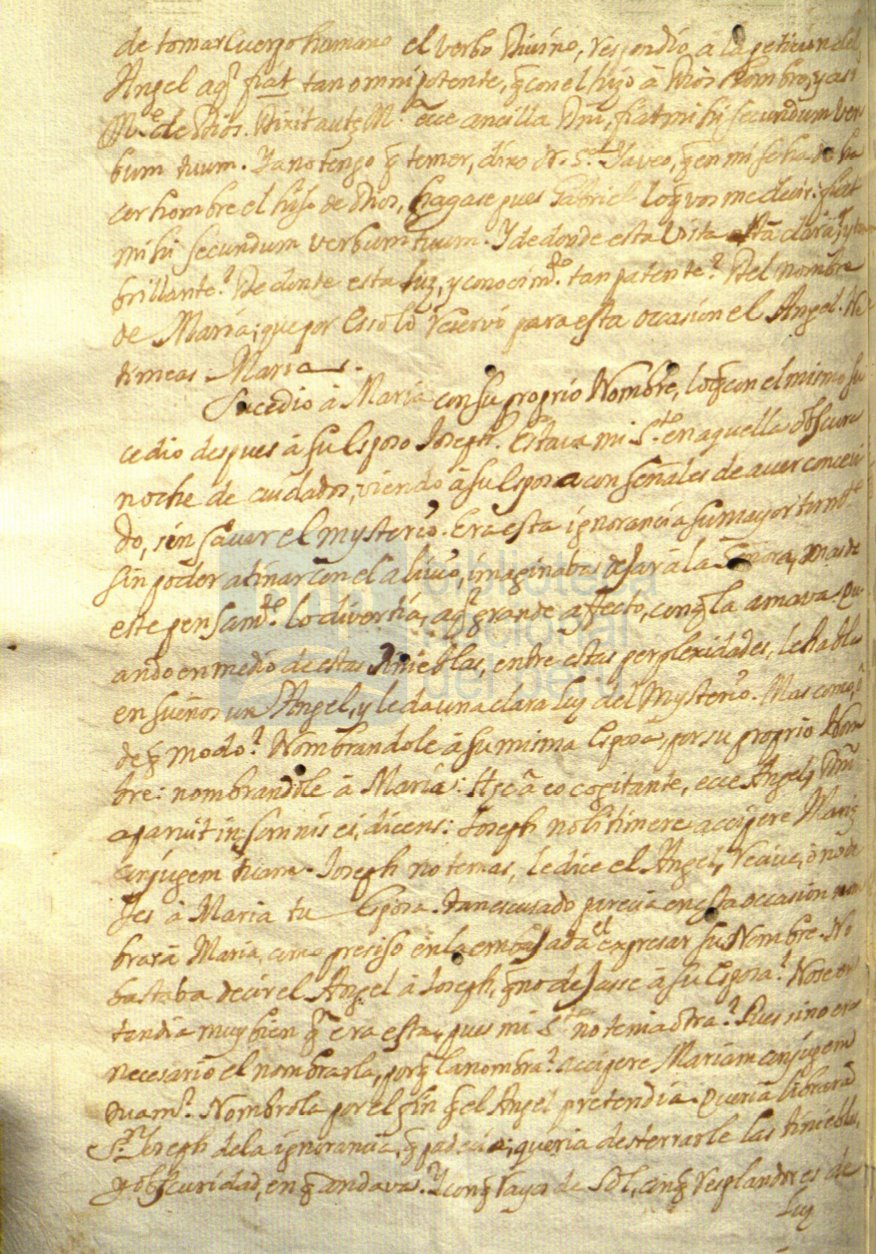 de tomar cuerpo humano el verbo Divino, respondio, a la peticion del
Angel aql̃ fiat tan omnipotente, q̃ con el hizo â Dios hombre, y asi
M.e de Dios. Dixit autẽ M.ª ecce ancilla Dñi, fiat mihi secundum ver-
bum tuum. Ya no tengo q̃ temer, dixo N. S.ra Ya veo, q̃ en mi se ha de ha
cer hombre el hijo de Dios, hagase pues Gabriel lo q̃ vos me decis: fiat
mihi secundum verbum tuum. Y de donde esta vista tã clara, y tan
brillante? De donde esta luz, y conocim.to tan patente? Del nombre
de Maria; que por esso lo reservò para esta occasion el Angel. Ne
timeas Maria.
Sucedio â Maria con su proprio Nombre, lo q̃ con el mismo su
cedio despues â su Esposo Joseph. Estava mi S.to en aquella obscura
noche de cuidados, viendo â su Esposa con señales de aver concebi
do, sin saver el mysterio. Era esta ignorancia su mayor torm.to
sin poder atinar con el alivio, imaginaba dejar â la Señora, mas de
este pensam.to lo divertia, aql̃ grande afecto, con q̃ la amava. Qu
ando en medio de estas tinieblas, entre estas perplexidades, le habla
en sueños un Angel, y le da una clara luz del Mysterio. Mas como, ò
de q̃ modo? Nombrandole â su misma Esposa, por su proprio Nom
bre: nombrandole â Maria: Hæc ã eo cogitante, ecce Angelꝰ Dñi
aparuit in somnis ei, dicens: Joseph noli timere accipere Mariã
conjugem tuam. Joseph no temas, le dice el Angel, recive, ò no de
jes â Maria tu Esposa. Tan escusado parecia en esta occasion nom
brar â Maria, como preciso en la embajada el expresar su Nombre. No
bastaba decir el Angel â Joseph, q̃ no dejasse â su Esposa? No se en
tendia muy bien q̃ era esta, pues mi S.to no tenia otra? Pues si no era
necesario el nombrarla, porq̃ la nombra? accipere Mariam conjugem
tuam? Nombrola por el fin q̃ el Angel pretendia. Queria librar â
S.r Joseph de la ignorancia, q̃ padecia; queria desterrarle las tinieblas,
y obscuridad, en q̃ andava. Y con q̃ rayos de Sol, con q̃ resplandores de
luz
biblioteca
nacional
del perú